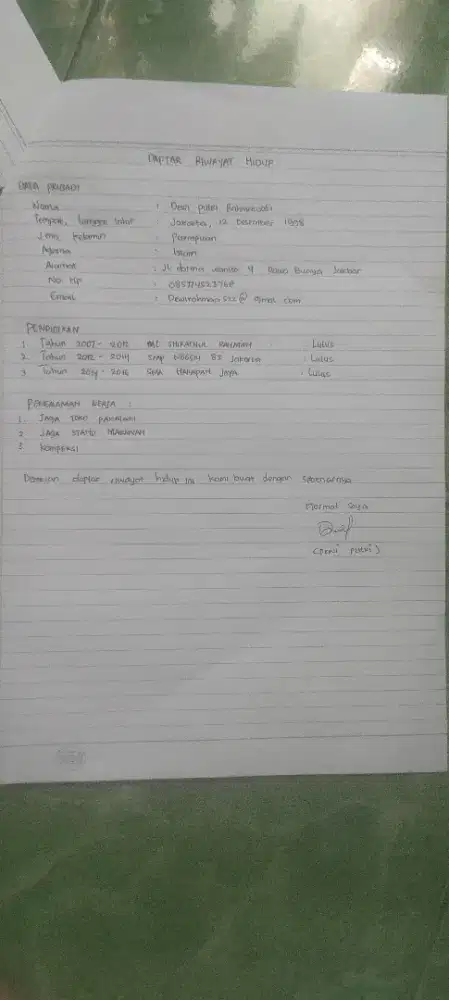 DAPTAR RIWAYAT HIDUP
DATA PRIBADI
Nama : Dewi Putri
Tempat, tanggal lahir : Jakarta, 12 Desember 1998
Jenis kelamin : Perempuan
Agama : Islam
Alamat : Jl. darma wanita 4 Rawa Buaya Jakbar
No Hp :
Email : @ gmail.com
PENDIDIKAN
1. Tahun 2007 - 2012 : Lulus
2. Tahun 2012 - 2014 SMP 82 Jakarta : Lulus
3. Tahun 2014 - 2016 SMA HARAPAN JAYA : Lulus
PENGALAMAN KERJA :
1. JAGA TOKO PAKAIAN
2. JAGA STAND MAKANAN
3. KONPEKSI
Demikian daptar riwayat hidup ini kami buat dengan sebenarnya
Hormat saya
(Dewi Putri)